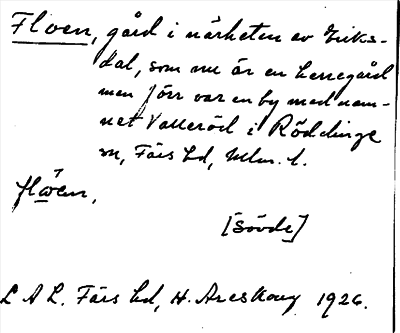 Floen, gård i närheten av Eriks-
dal, som nu är en herregård
men förr var en by med nam-
net Valleröd i Röddinge
sn, Färs hd, Mlm. l.
flöen,
[Sövde]
L A L. Färs hd, H. Areskoug 1926.